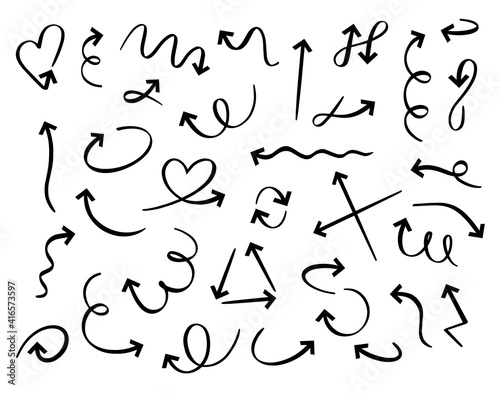 Adobe Stock | #416573597